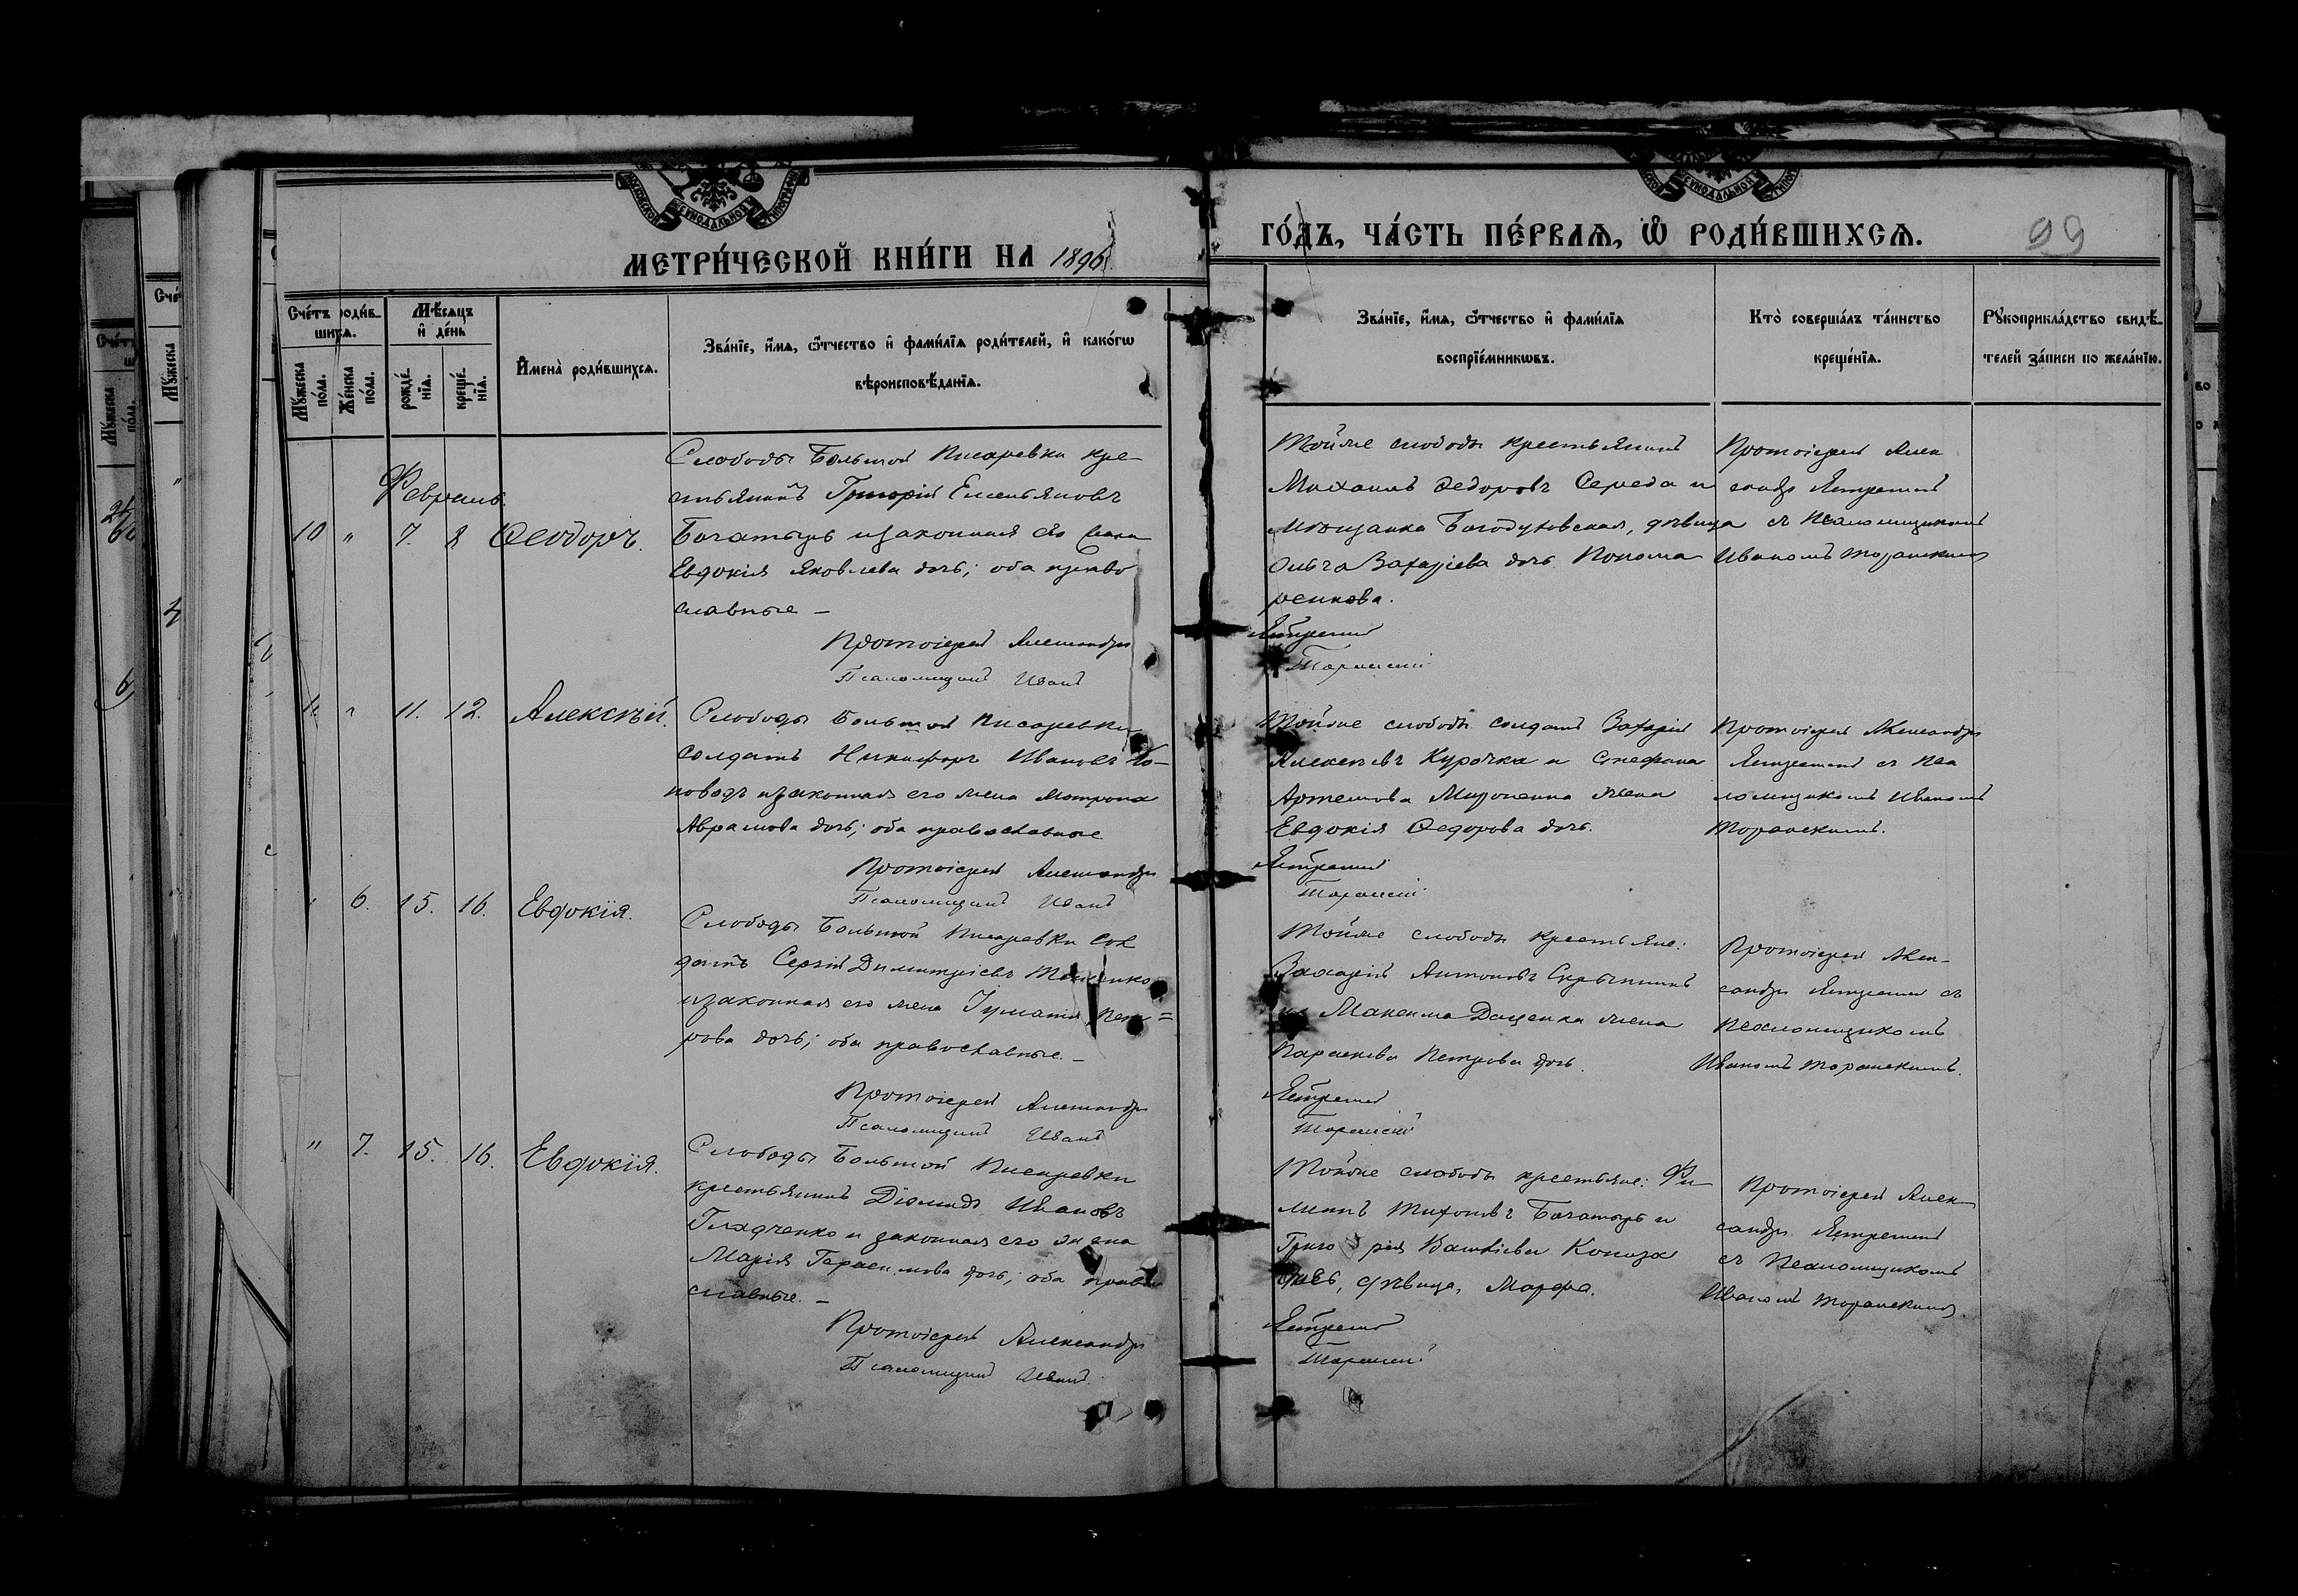 МЕТРИ́ЧЕСКОЙ КНИ́ГИ НА 1896
ГО́ДЪ, ЧА́СТЬ ПЕ́РВАЯ, Ѡ РОДИ́ВШИХСЯ.
99
Сче́тъ роди́в-
шихся.
Мꙋ́жеска по́ла.
Же́нска по́ла.
Мѣ́сяцъ и де́нь
рожде́нїя.
креще́нїя.
Имена̀ роди́вшихся.
Зва́нїе, и́мя, ѻ҆́тчество и фами́лїя роди́телей, и како́гѡ
вѣроисповѣ́данїя.
Зва́нїе, и́мя, ѻ҆́тчество и фами́лїя
воспрїе́мникѡвъ.
Кто̀ соверша́лъ та́инство
креще́нїя.
Рꙋкоприкла́дство свидѣ́-
телей за́писи по жела́нїю.
Февраль
10 " 7. 8 Ѳеодоръ.
Слободы Большой Писаревки кре-
стьянинъ Григорій Емельяновъ
Богатырь и законная его жена
Евдокія Яковлева дочь; оба право
славные –
Протоіерей Александръ
Псаломщикъ Иванъ
Тойже слободы крестьянинъ
Михаилъ Ѳедоровъ Середа и
мѣщанка Богодуховская, дѣвица
Ольга Захаріева дочь Понома
ренкова.
Протоіерей Алек
сандръ
съ Псаломщикомъ
Иваномъ Торанскимъ
Торанскій
11. " 11. 12. Алексѣй.
Слободы Большой Писаревки
солдатъ Никифоръ Ивановъ
и законная его жена Матрона
Аврамова дочь; оба православные
Протоіерей Александръ
Псаломщикъ Иванъ
Тойже слободы солдатъ Захарій
Алексѣевъ Курочка и Стефана
Артемова Мироненка жена
Евдокія Ѳедорова дочь.
Протоіерей Александръ
съ Пса
ломщикомъ Иваномъ
Торанскимъ.
Торанскій
" 6. 15. 16. Евдокія.
Слободы Большой Писаревки Сол
датъ Сергій Димитріевъ
и законная его жена Пет=
рова дочь; оба православные. –
Протоіерей Александръ
Псаломщикъ Иванъ
Тойже слободы крестьяне:
Захарій Антоновъ
и Максима Даценка жена
Параскева Петрова дочь.
Протоіерей Алек-
сандръ съ
Псаломщикомъ
Иваномъ Торанскимъ.
Торанскій
" 7. 15. 16. Евдокія.
Слободы Большой Писаревки
крестьянинъ Діомидъ Ивановъ
Гладченко и законная его жена
Марія Герасимова дочь; оба право
славные. –
Протоіерей Александръ
Псаломщикъ Иванъ
Тойже слободы крестьяне: Фи
липпъ Тихоновъ Богатырь и
Григорія
дочь, дѣвица, Марфа.
Протоіерей Алек
сандръ
съ Псаломщикомъ
Иваномъ Торанскимъ.
Торанскій